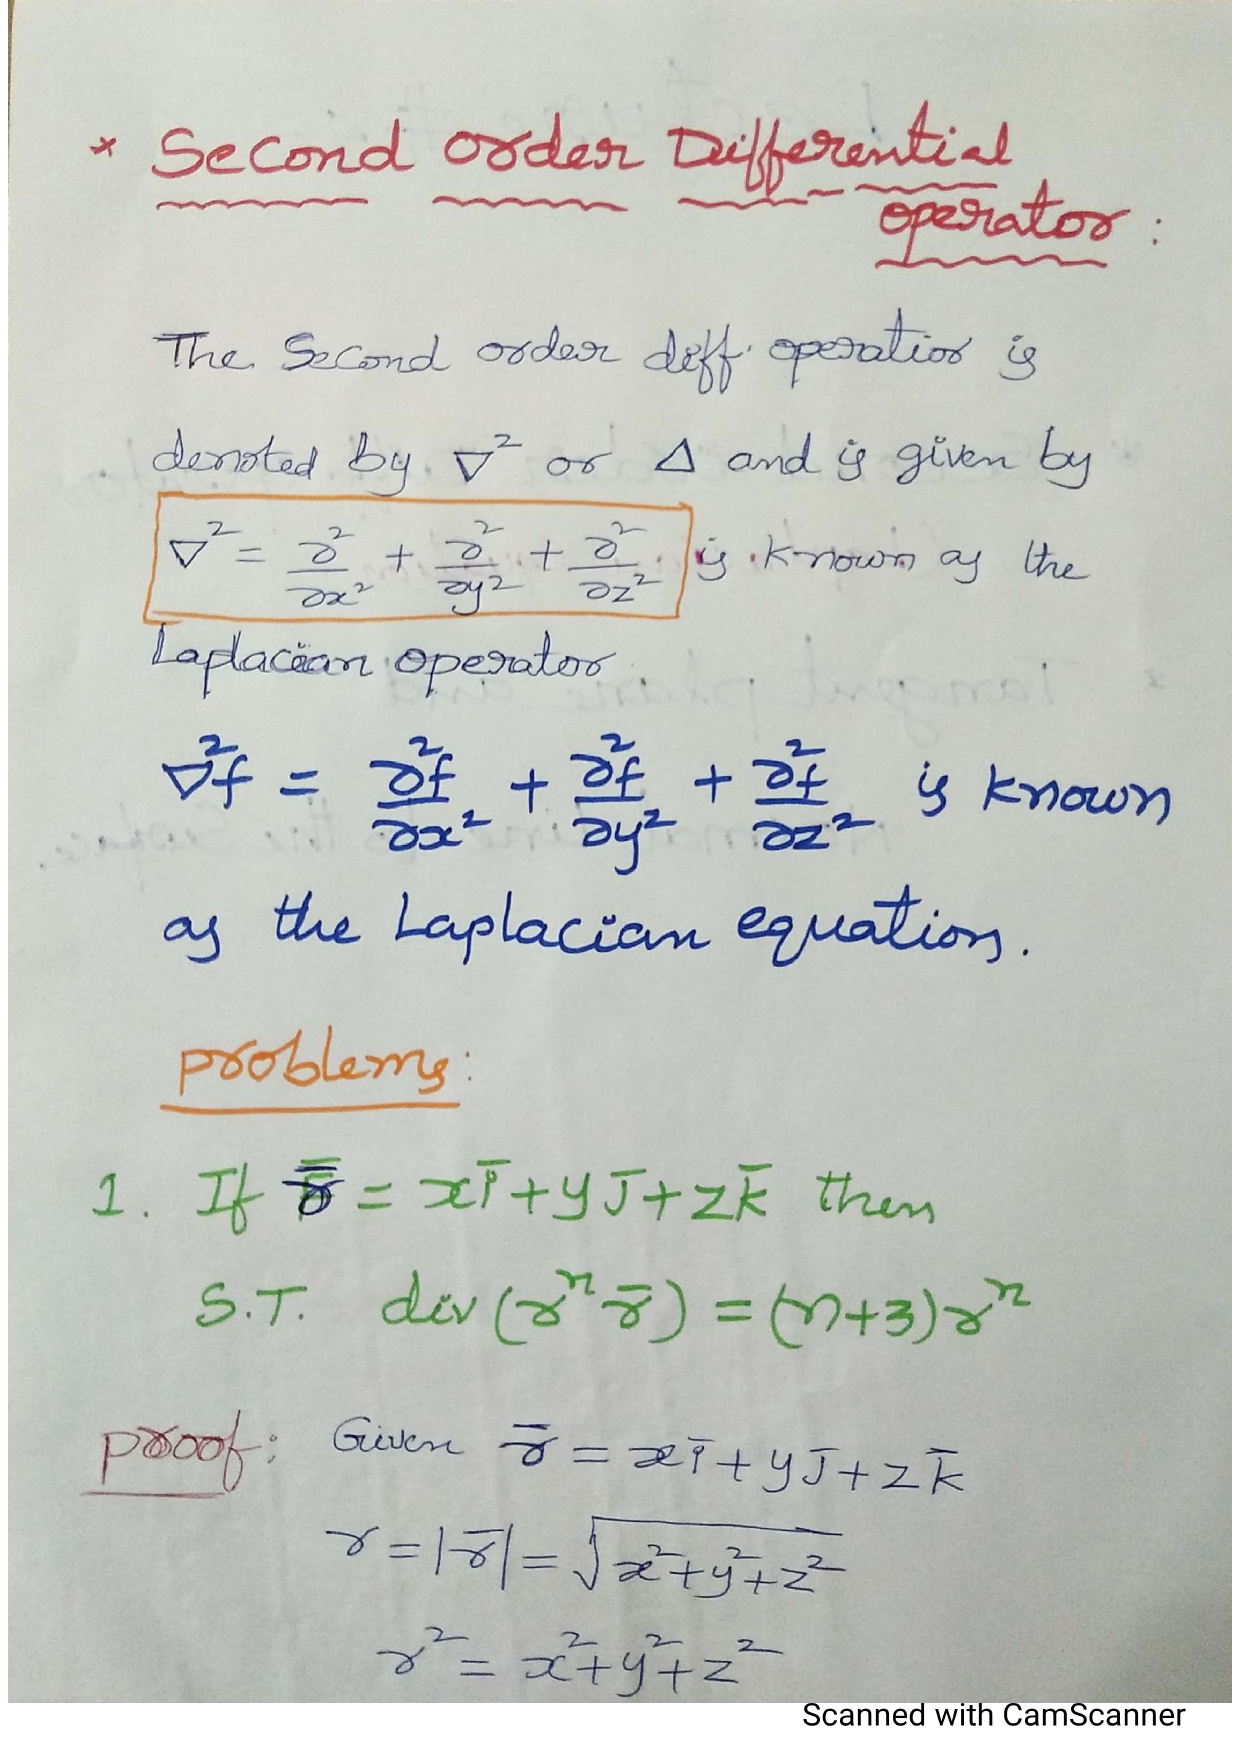 * Second order Differential
operator :
The Second order diff. operatior is
denoted by ∇² or Δ and is given by
∇² = ∂²/∂x² + ∂²/∂y² + ∂²/∂z² is known as the
Laplacian operator
∇²f = ∂²f/∂x² + ∂²f/∂y² + ∂²f/∂z² is known
as the Laplacian equation.
problems:
1. If r̄ = xī + yj̄ + zk̄ then
S.T. div (rⁿ r̄) = (n+3) rⁿ
proof: Given r̄ = xī + yj̄ + zk̄
r = |r̄| = √(x²+y²+z²)
r² = x²+y²+z²
Scanned with CamScanner